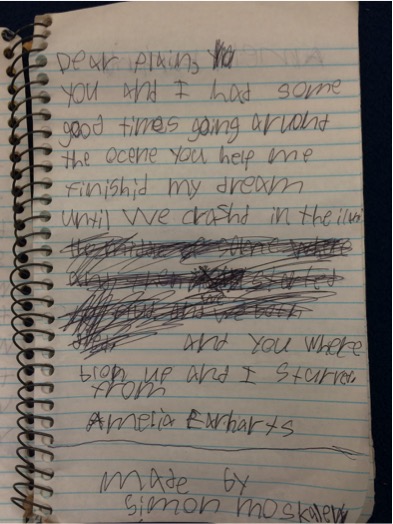 Dear plain,
you and I had some
good times going around
the ocene you help me
finishid my dream
until we crashd in the
and you where
blon up and I
from
Amelia Earharts
made by
simon